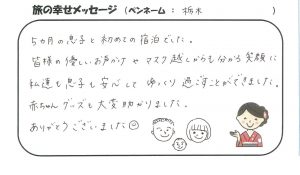 旅の幸せメッセージ（ペンネーム：栃木　）
5ヵ月の息子と初めての宿泊でした。
皆様の優しいお声かけやマスク越しからも分かる笑顔に
私達も息子も安心してゆっくり過ごすことができました。
赤ちゃんグッズも大変助かりました。
ありがとうございました